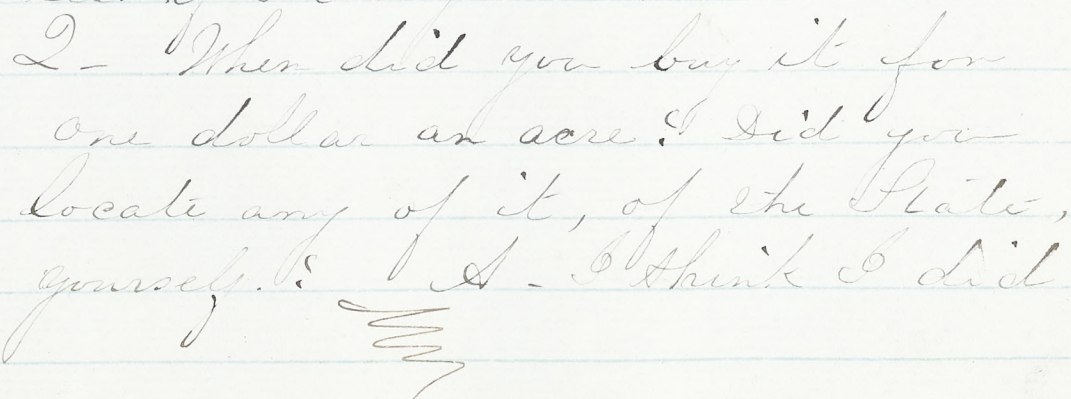 Q- When did you buy it for
one dollar an acre? Did you
locate any of it, of the State,
yourself.? A- I think I did